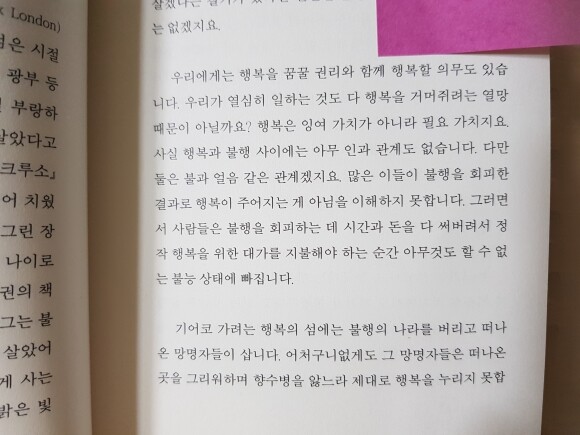 k London)
은 시절
광부 등
부랑하
살았다고
크루소」
어 치웠
그린 장
나이로
권의 책
그는 불
살았어
게 사는
밝은 빛
는 없겠지요.
우리에게는 행복을 꿈꿀 권리와 함께 행복할 의무도 있습
니다. 우리가 열심히 일하는 것도 다 행복을 거머쥐려는 열망
때문이 아닐까요? 행복은 잉여 가치가 아니라 필요 가치지요.
사실 행복과 불행 사이에는 아무 인과 관계도 없습니다. 다만
둘은 불과 얼음 같은 관계겠지요. 많은 이들이 불행을 회피한
결과로 행복이 주어지는 게 아님을 이해하지 못합니다. 그러면
서 사람들은 불행을 회피하는 데 시간과 돈을 다 써버려서 정
작 행복을 위한 대가를 지불해야 하는 순간 아무것도 할 수 없
는 불능 상태에 빠집니다.
기어코 가려는 행복의 섬에는 불행의 나라를 버리고 떠나
온 망명자들이 삽니다. 어처구니없게도 그 망명자들은 떠나온
곳을 그리워하며 향수병을 앓느라 제대로 행복을 누리지 못합